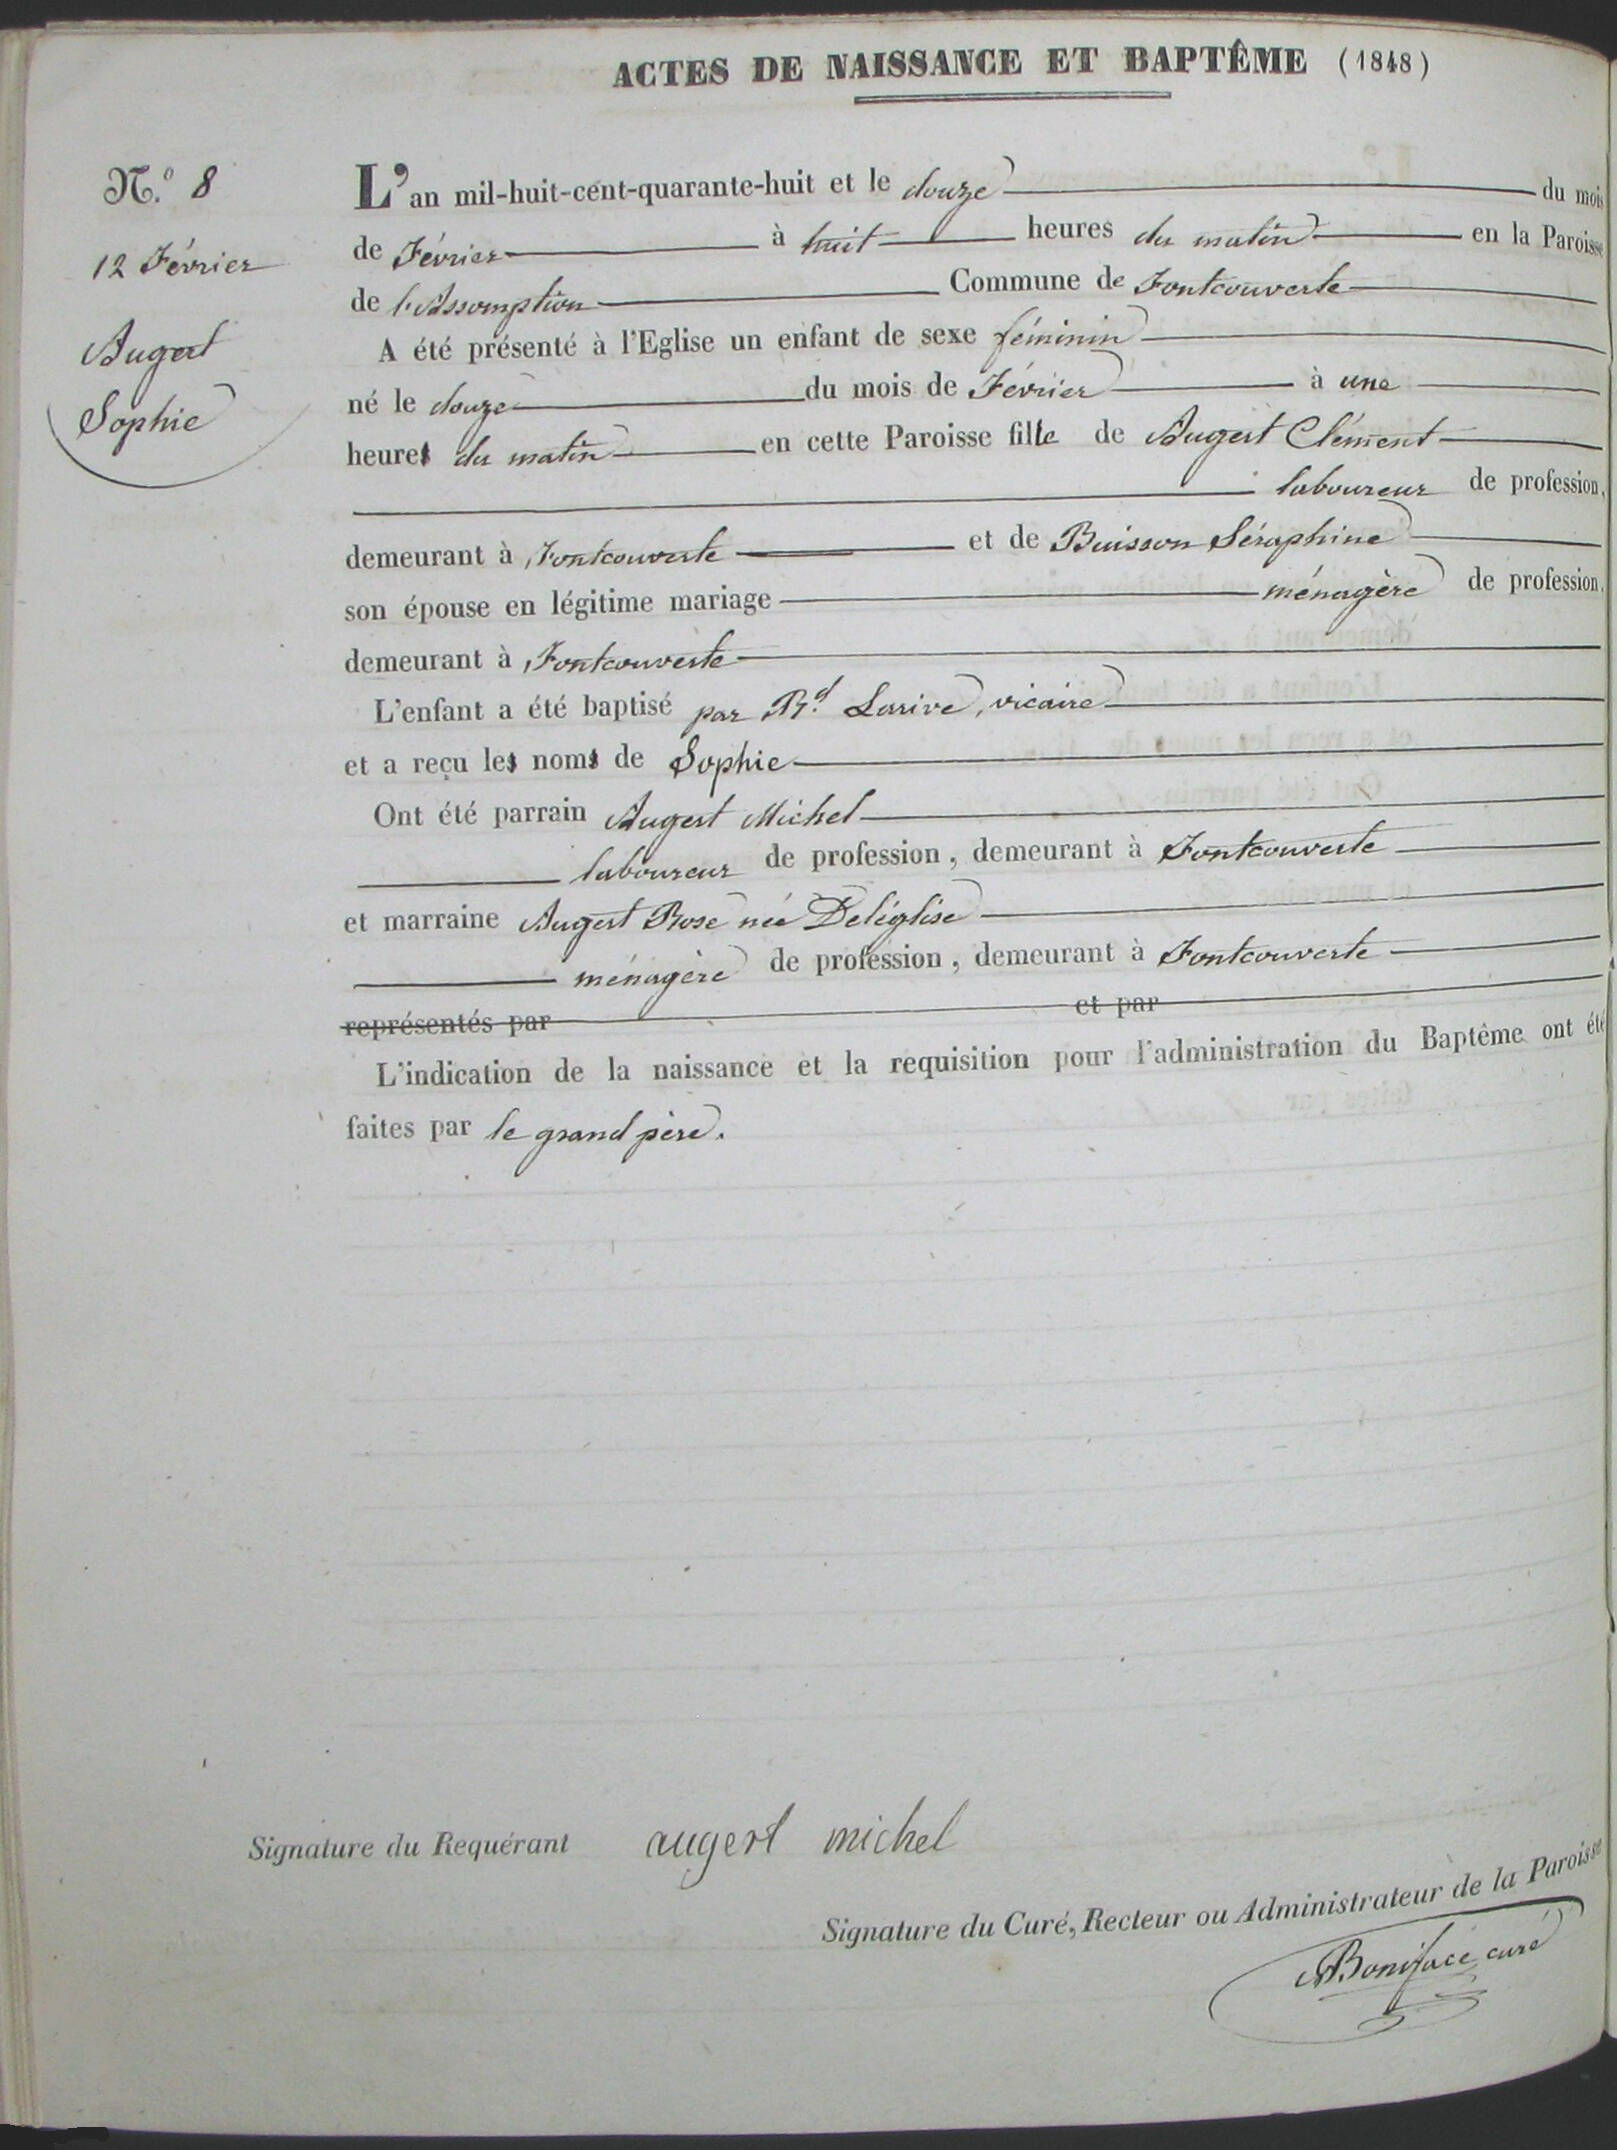 ACTES DE NAISSANCE ET BAPTÊME (1848)
N.º 8
12 Février
Augert
Sophie
L'an mil-huit-cent-quarante-huit et le douze du mois
de Février à huit heures du matin en la Paroisse
de l'Assomption Commune de Fontcouverte
A été présenté à l'Eglise un enfant de sexe féminin
né le douze du mois de Février à une
heures du matin en cette Paroisse fille de Augert Clément
laboureur de profession,
demeurant à Fontcouverte et de Buisson Séraphine
son épouse en légitime mariage ménagère de profession,
demeurant à Fontcouverte
L'enfant a été baptisé par Rd. Larive, vicaire
et a reçu les noms de Sophie
Ont été parrain Augert Michel
laboureur de profession, demeurant à Fontcouverte
et marraine Augert Rose née Deléglise
ménagère de profession, demeurant à Fontcouverte
représentés par et par
L'indication de la naissance et la requisition pour l'administration du Baptême ont été
faites par le grand père.
Signature du Requérant augert michel
Signature du Curé, Recteur ou Administrateur de la Paroisse
Boniface curé